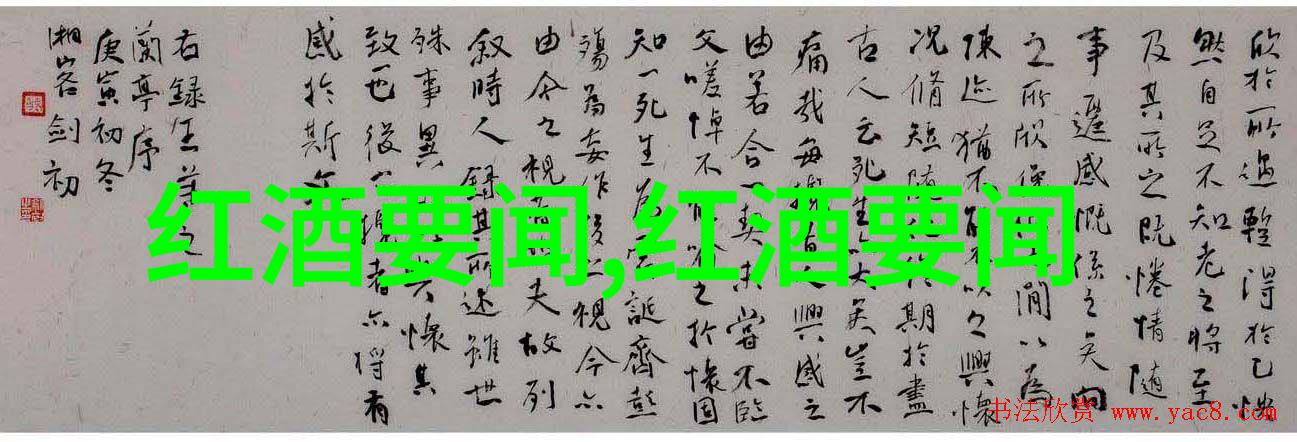 欣於所遇暫得於己快
然自足不知老之將至
及其所之既惓情隨
事遷感慨係之矣向
之所欣間以為
陳迹猶不能不以之興懷
況脩短隨化終期於盡
古人云死生亦大矣豈不
痛哉每攬昔人興感之
由若合一契未嘗不臨
文嗟悼不之於懷固
知一死生為誕齊彭
殤為妄作後之視今亦
由今之視昔夫故列
敘時人錄其所述雖世
殊事異興懷其
致一也後之攬者亦將有
感於斯文
右錄王羲之
蘭亭序
庚寅初冬
湘客劍初
红酒要闻,红酒要闻
书法欣赏 www.yac8.com